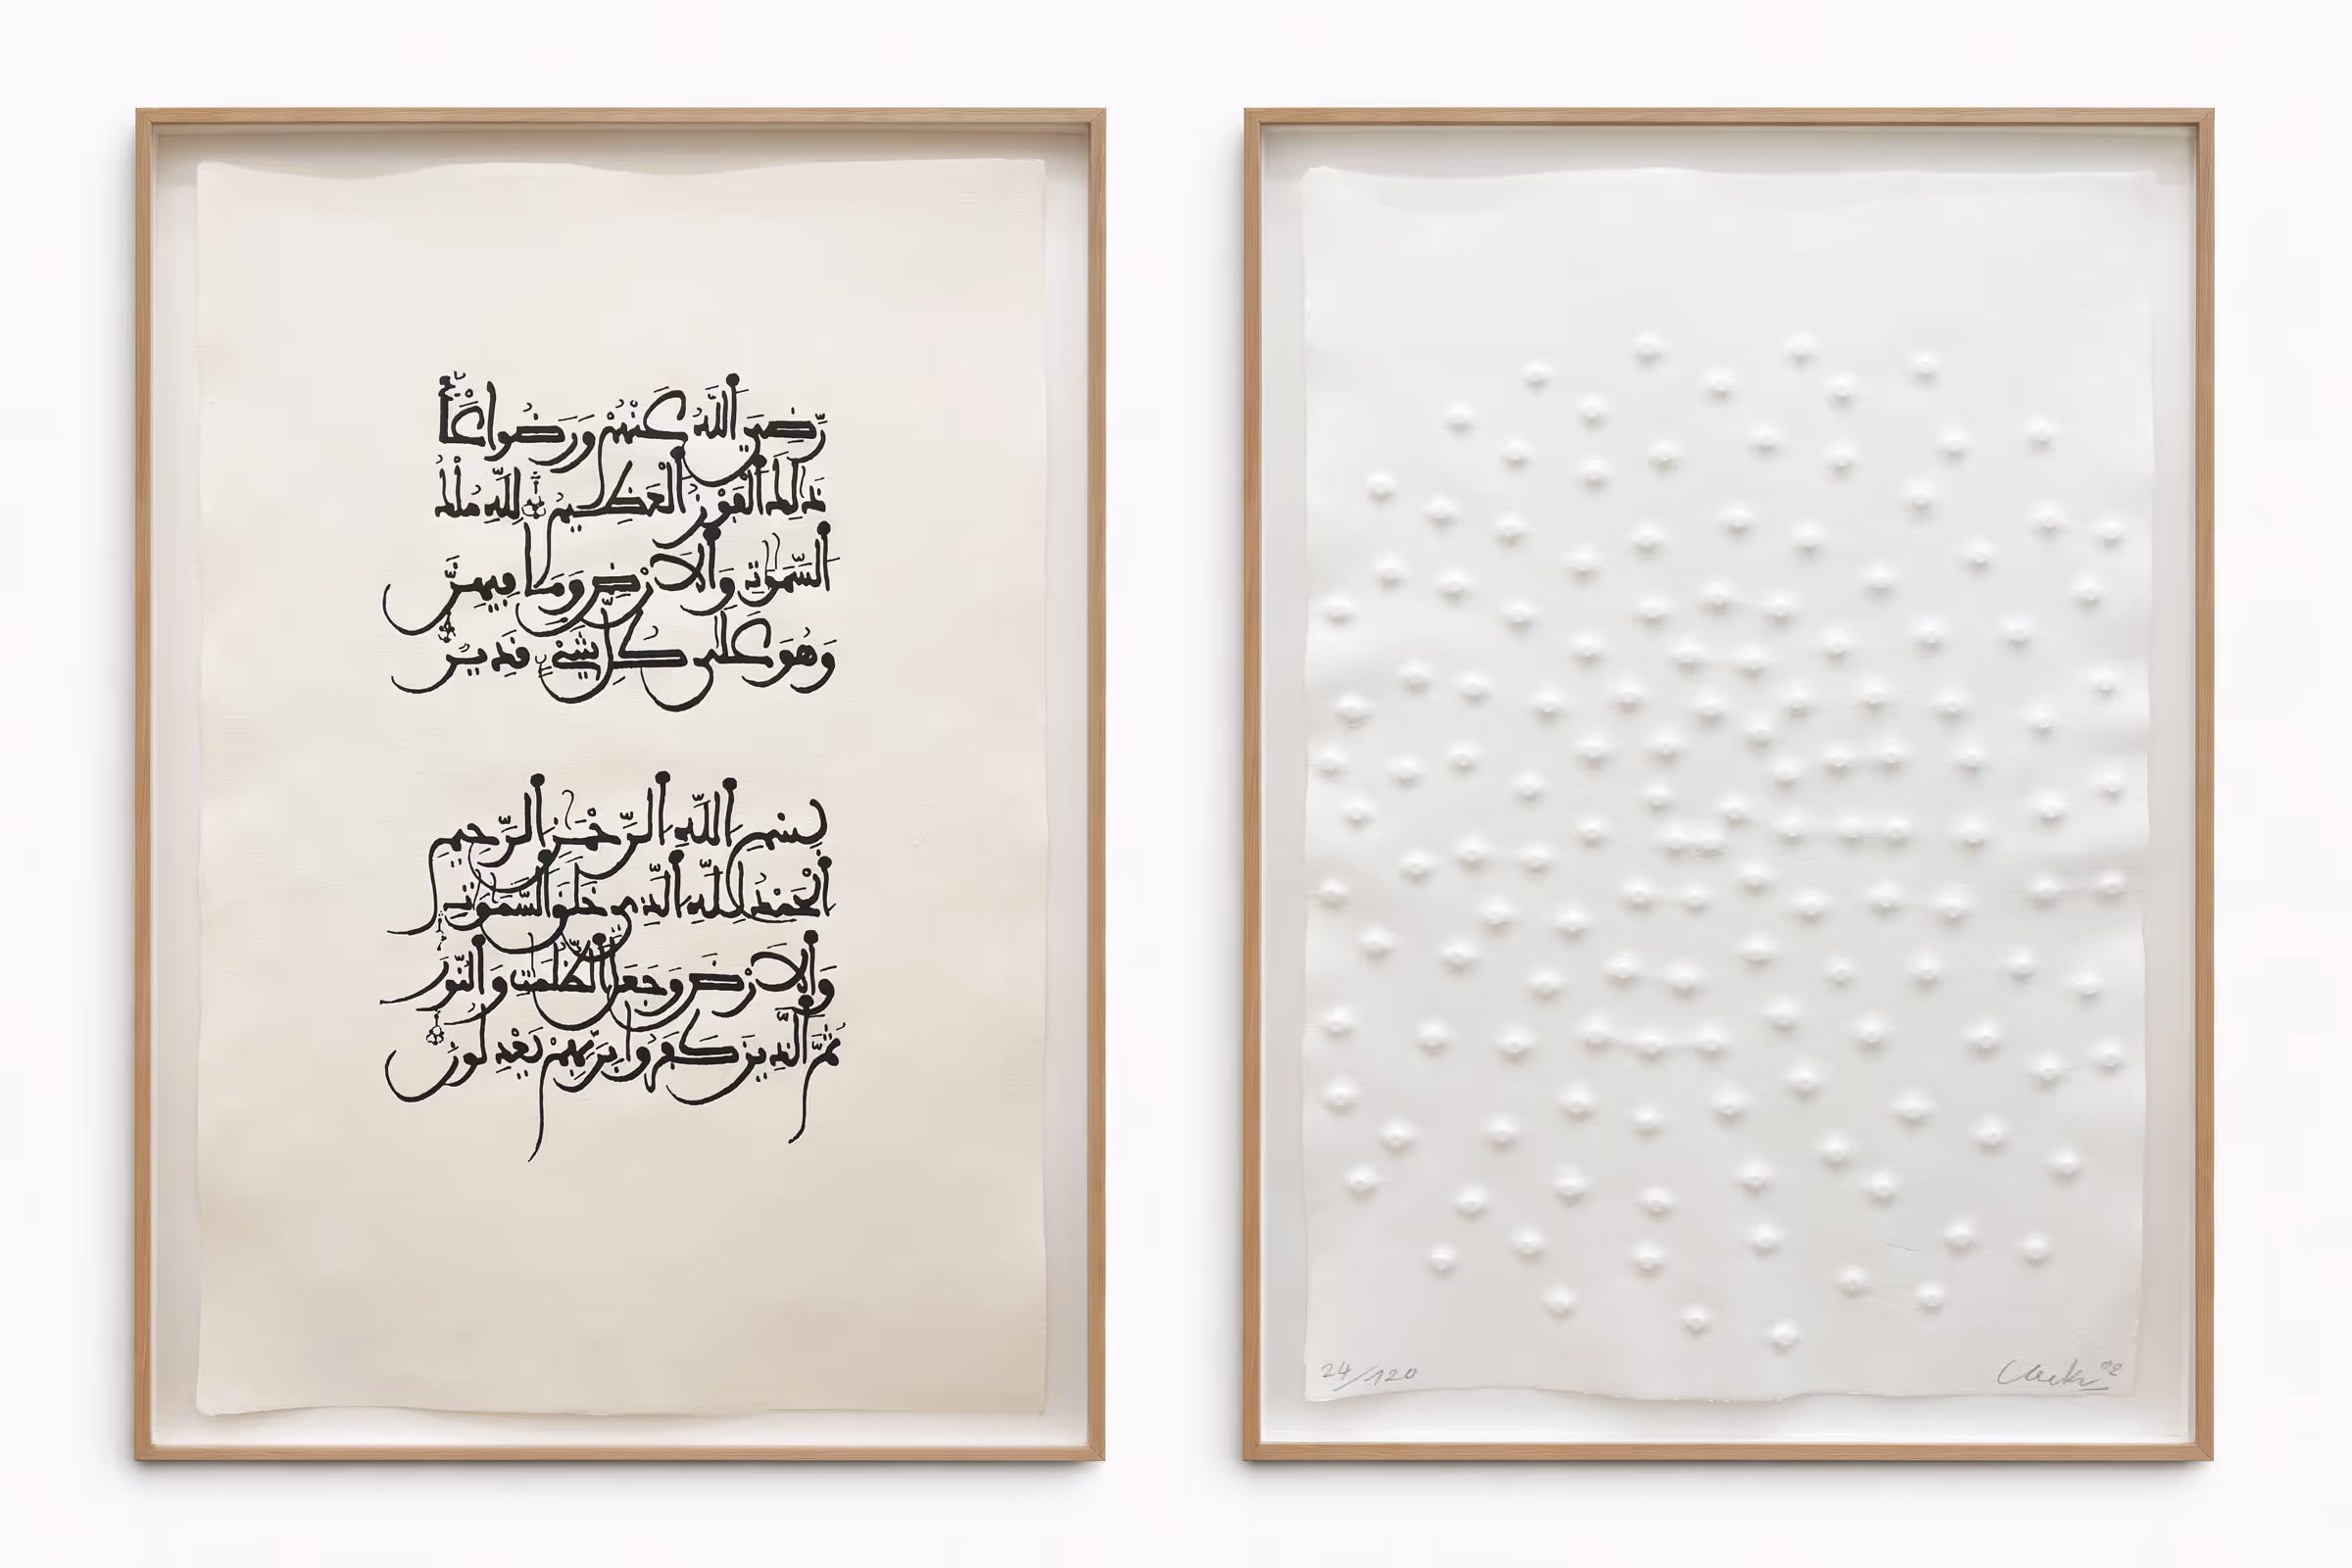 رَّضِيَ اَللَّهُ عَنْهُمْ وَرَضُواْ عَنْهُ
ذَٰلِكَ اَلْفَوْزُ اَلْعَظِيمُ لِلَّهِ مُلْكُ
اُلسَّمَٰوَٰتِ وَالَارْضِ وَمَا فِيهِنَّ
وَهُوَ عَلَىٰ كُلِّ شَيْءٖ قَدِيرٌ
بِسْمِ اِللَّهِ اِلرَّحْمَٰنِ اِلرَّحِيمِ
اِلْحَمْدُ لِلهِ اِلذِي خَلَقَ اَلسَّمَٰوَٰتِ
وَالَارْضَ وَجَعَلَ اَلظُّلُمَٰتِ وَالنُّورَ
ثُمَّ اَلذِينَ كَفَرُواْ بِرَبِّهِمْ يَعْدِلُونَ
24/120